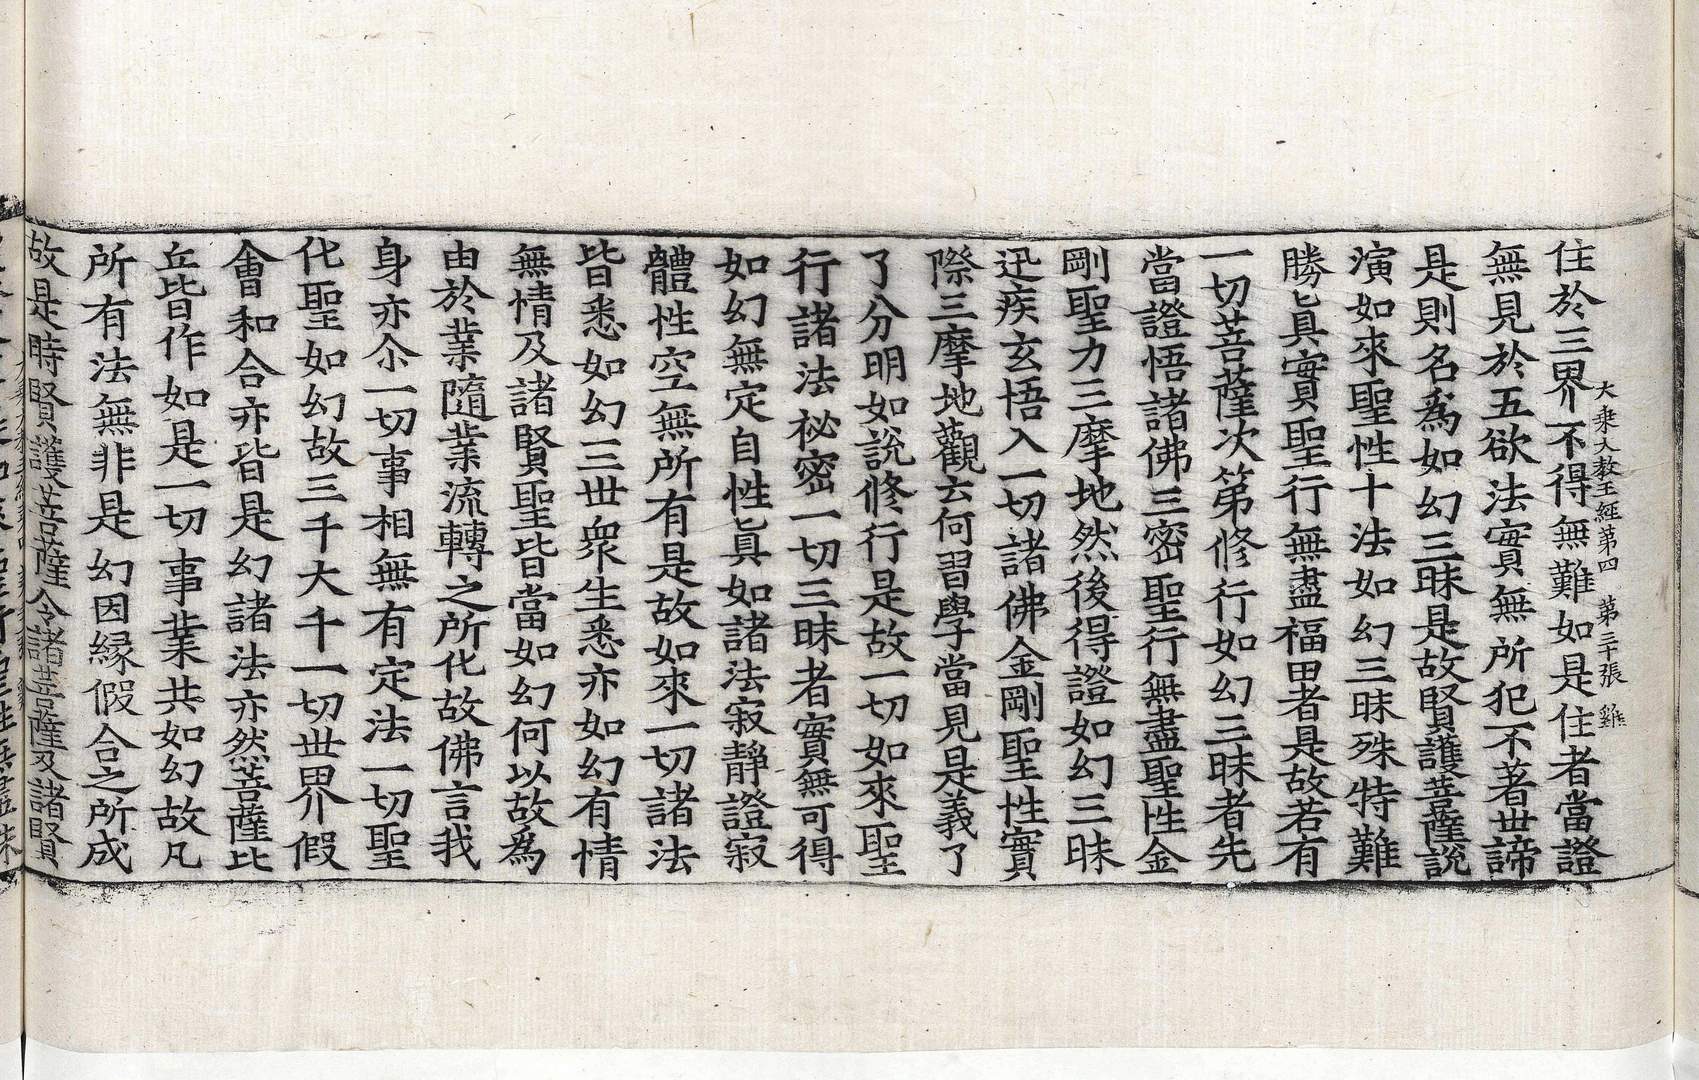 大乘大教王經第四　第三十張　雞
住於三界不得無難如是住者當證
無見於五欲法實無所犯不著世諦
是則名爲如幻三昧是故賢護菩薩說
演如來聖性十法如幻三昧殊特難
勝㫖眞實聖行無盡福田者是故若有
一切菩薩次第修行如幻三昧者先
當證悟諸佛三密聖行無盡聖性金
剛聖力三摩地然後得證如幻三昧
迅疾玄悟入一切諸佛金剛聖性實
際三摩地觀云何習學當見是義了
了分明如說修行是故一切如來聖
行諸法祕密一切三昧者實無可得
如幻無定自性㫖眞如諸法寂靜證寂
體性空無所有是故如來一切諸法
皆悉如幻三世衆生悉亦如幻有情
無情及諸賢聖皆當如幻何以故爲
由於業隨業流轉之所化故佛言我
身亦尒一切事相無有定法一切聖
化聖如幻故三千大千一切世界假
會和合亦皆是幻諸法亦然菩薩比
丘皆作如是一切事業共如幻故凡
所有法無非是幻因緣假合之所成
故是時賢護菩薩令諸菩薩及諸賢